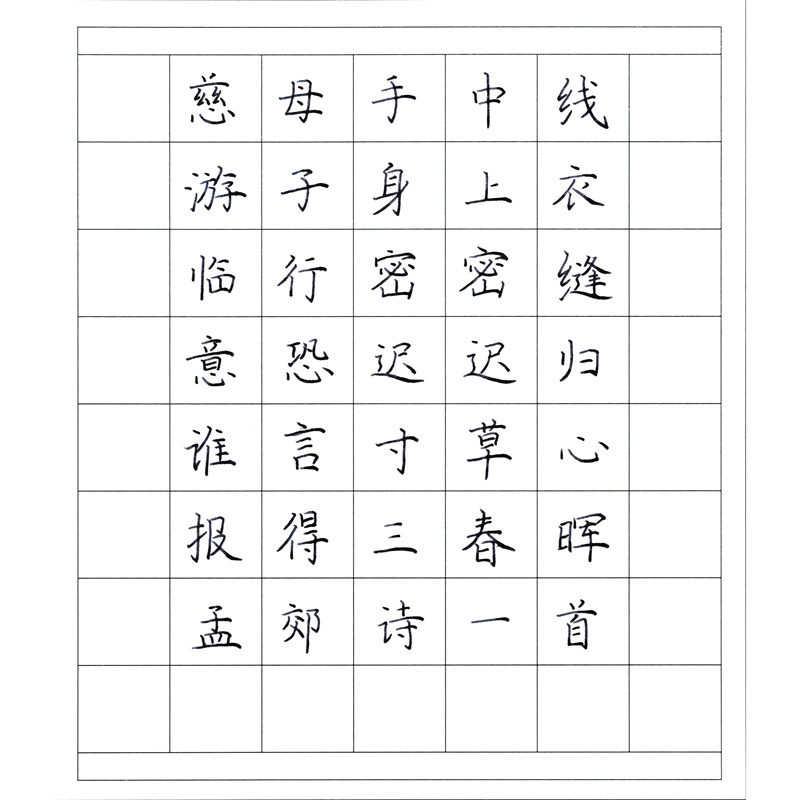 慈母手中线
游子身上衣
临行密密缝
意恐迟迟归
谁言寸草心
报得三春晖
孟郊诗一首